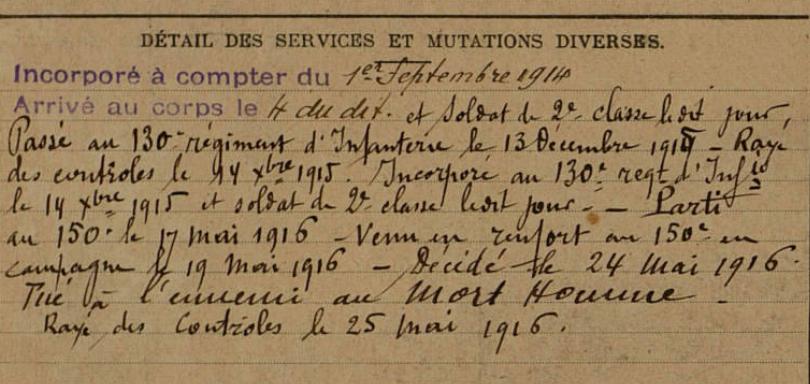 DÉTAIL DES SERVICES ET MUTATIONS DIVERSES.
Incorporé à compter du 1er Septembre 1914
Arrivé au corps le 4 du dit. et Soldat de 2e classe ledit jour,
Passé au 130e régiment d'Infanterie le 13 Décembre 1915 – Rayé
des contrôles le 14 xbre 1915. Incorporé au 130e regt d'Infie
le 14 xbre 1915 et soldat de 2e classe ledit jour. – Parti
au 150e le 17 mai 1916 – Venu en renfort au 150e en
campagne le 19 Mai 1916 – Décédé le 24 Mai 1916.
Tué à l'ennemi au Mort Homme –
Rayé des Contrôles le 25 Mai 1916.